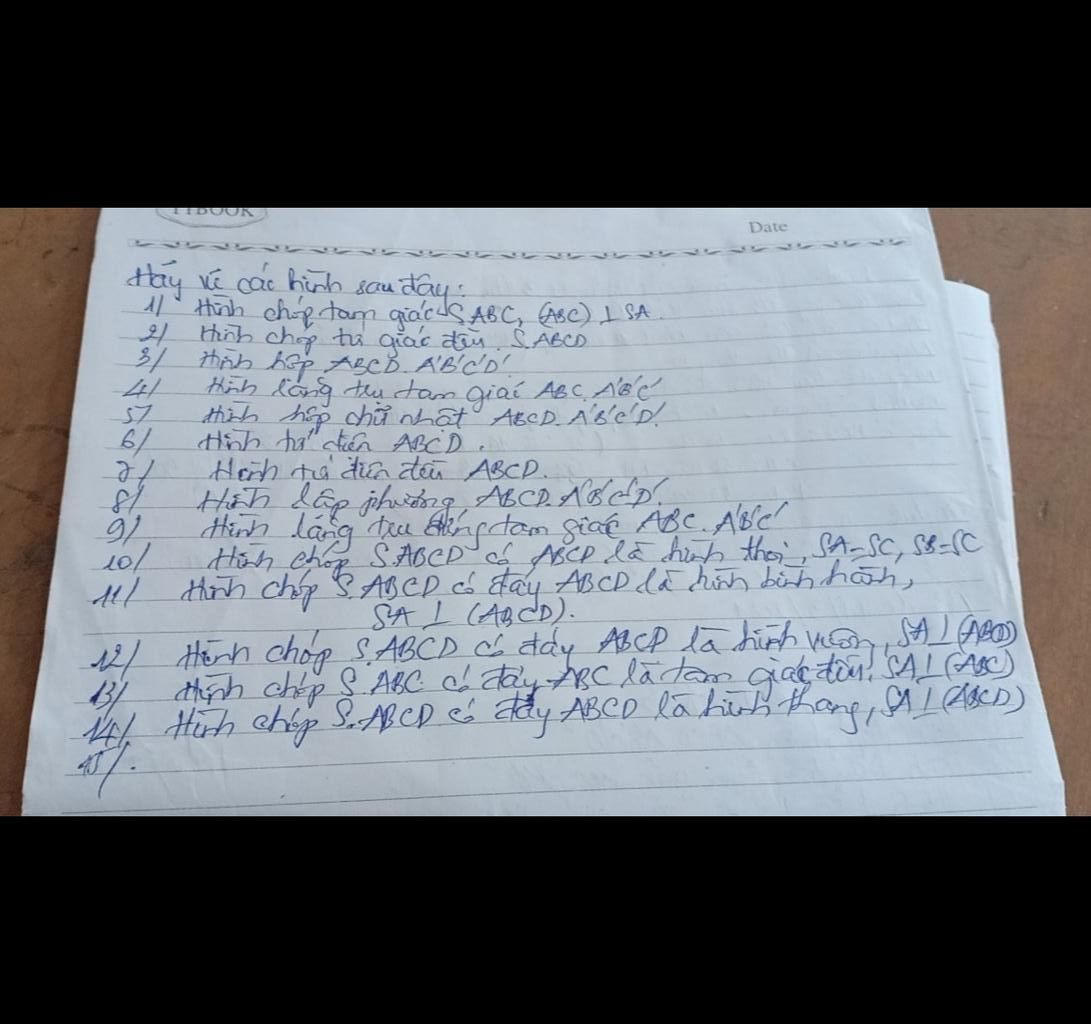 TYBOOK
Date
Hãy vẽ các hình sau đây:
1/ Hình chóp tam giác S.ABC, (ABC) ⊥ SA.
2/ Hình chóp tứ giác đều S.ABCD
3/ Hình hộp ABCD.A'B'C'D'
4/ Hình lăng trụ tam giác ABC.A'B'C'
5/ Hình hộp chữ nhật ABCD.A'B'C'D'.
6/ Hình tứ diện ABCD.
7/ Hình tứ diện đều ABCD.
8/ Hình lập phương ABCD.A'B'C'D'.
9/ Hình lăng trụ đứng tam giác ABC.A'B'C'
10/ Hình chóp S.ABCD có ABCD là hình thoi, SA=SC, SB=SC
11/ Hình chóp S.ABCD có đáy ABCD là hình bình hành,
SA ⊥ (ABCD).
12/ Hình chóp S.ABCD có đáy ABCD là hình vuông, SA ⊥ (ABCD)
13/ Hình chóp S.ABC có đáy ABC là tam giác đều, SA ⊥ (ABC)
14/ Hình chóp S.ABCD có đáy ABCD là hình thang, SA ⊥ (ABCD)
15/.